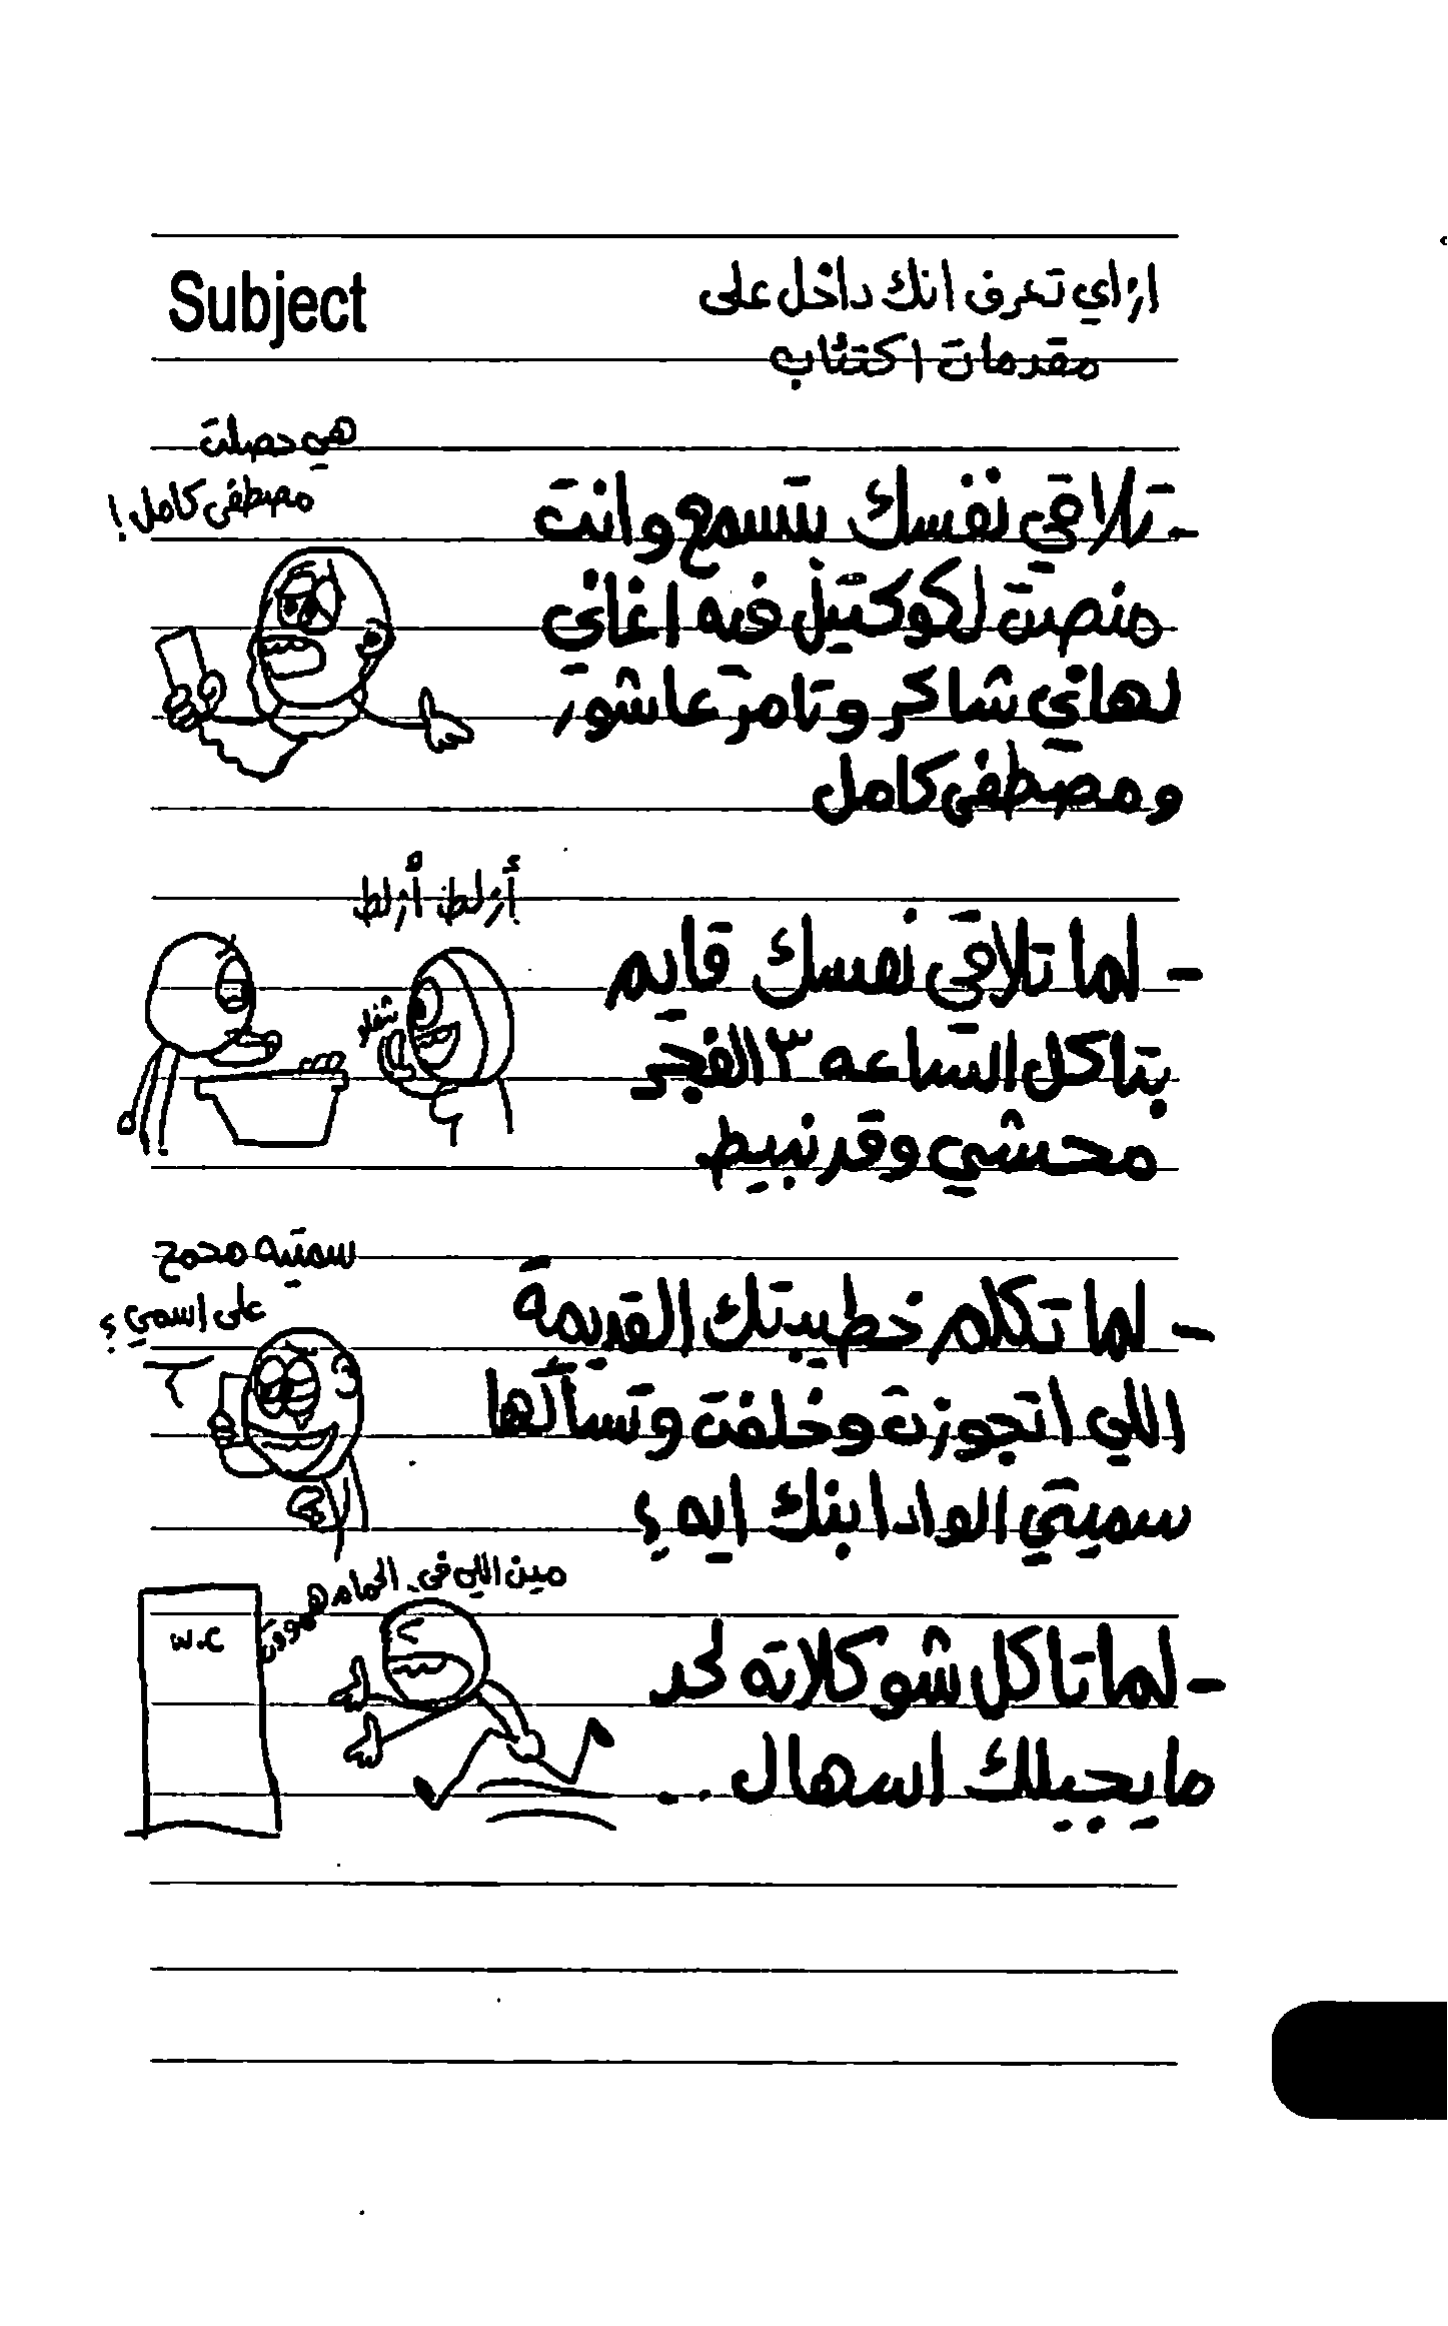 Subject
ازاي تعرف انك داخل على
مقدمات اكتئاب
هي حصلت
مصطفى كامل!
- تلاقي نفسك بتسمع وانت
منصت لكوكتيل فيه اغاني
لهاني شاكر وتامر عاشور
ومصطفى كامل
أزلط أزلط
- لما تلاقي نفسك قايم
بتاكل الساعه ٣ الفجر
محشي وقرنبيط
سمتيه محمح
على اسمي؟
- لما تكلم خطيبتك القديمة
اللي اتجوزت وخلفت وتسألها
سميتي الواد ابنك ايه؟
مين اللي في الحمام
W.C
- لما تاكل شوكلاته لحد
ما يجيلك اسهال ..